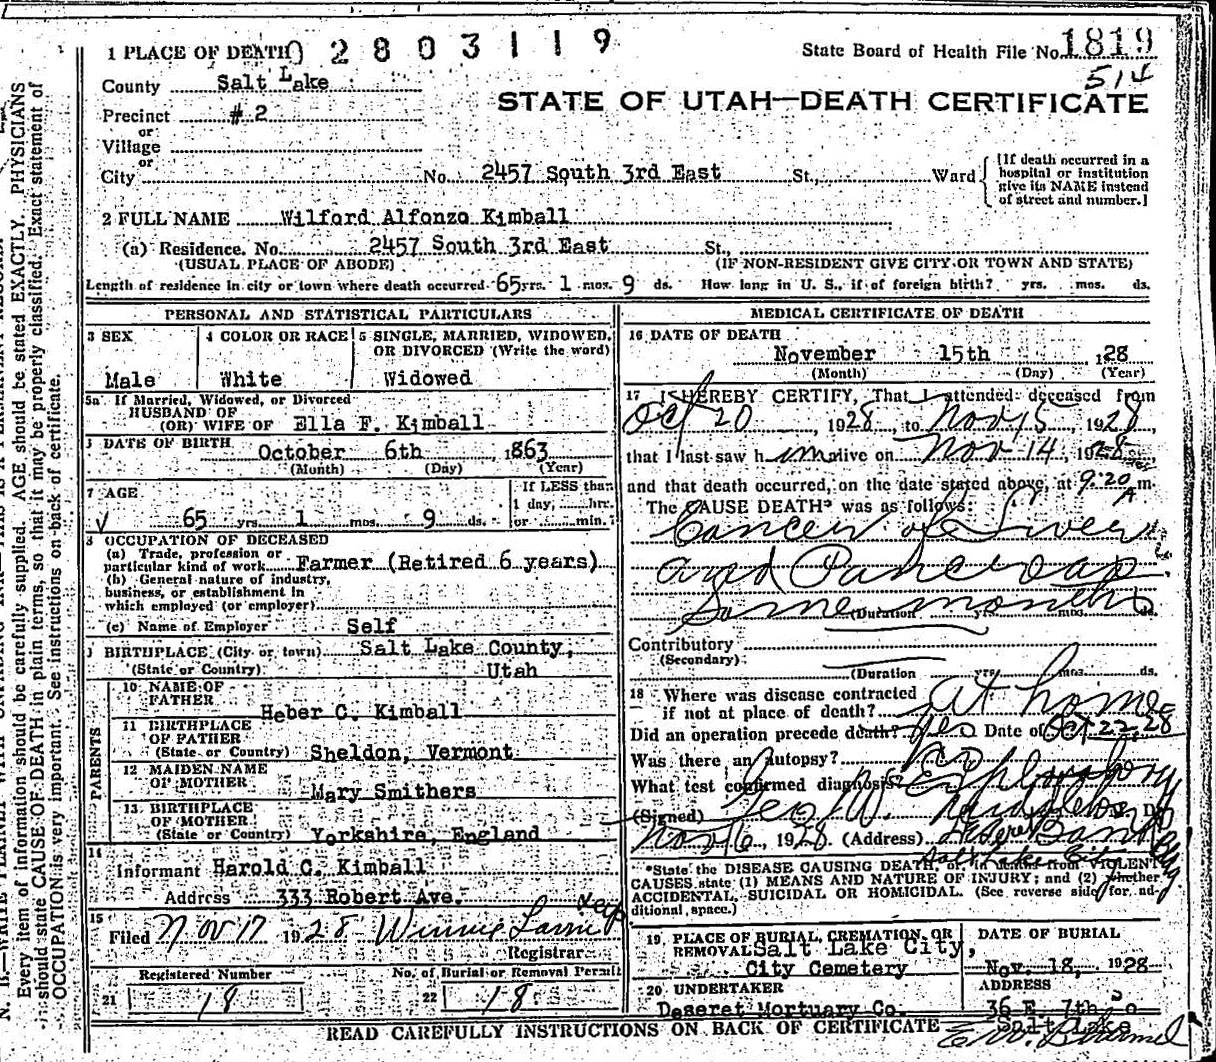 1 PLACE OF DEATH 02803119 State Board of Health File No. 1819
County Salt Lake 514
STATE OF UTAH—DEATH CERTIFICATE
Precinct #2
or
Village
or
City No. 2457 South 3rd East St., Ward [If death occurred in a hospital or institution give its NAME instead of street and number.]
2 FULL NAME Wilford Alfonzo Kimball
(a) Residence. No. 2457 South 3rd East St.,
(USUAL PLACE OF ABODE) (IF NON-RESIDENT GIVE CITY OR TOWN AND STATE)
Length of residence in city or town where death occurred 65 yrs. 1 mos. 9 ds. How long in U. S., if of foreign birth? yrs. mos. ds.
PERSONAL AND STATISTICAL PARTICULARS
3 SEX 4 COLOR OR RACE 5 SINGLE, MARRIED, WIDOWED, OR DIVORCED (Write the word)
Male White Widowed
5a If Married, Widowed, or Divorced
HUSBAND OF
(OR) WIFE OF Ella F. Kimball
DATE OF BIRTH October 6th 1863
(Month) (Day) (Year)
7 AGE If LESS than
1 day, hrs.
65 yrs. 1 mos. 9 ds. or min.?
8 OCCUPATION OF DECEASED
(a) Trade, profession or
particular kind of work Farmer (Retired 6 years)
(b) General nature of industry,
business, or establishment in
which employed (or employer)
(c) Name of Employer Self
BIRTHPLACE (City or town) Salt Lake County,
(State or Country) Utah
PARENTS
10 NAME OF
FATHER Heber C. Kimball
11 BIRTHPLACE
OF FATHER
(State or Country) Sheldon, Vermont
12 MAIDEN NAME
OF MOTHER Mary Smithers
13 BIRTHPLACE
OF MOTHER
(State or Country) Yorkshire, England
14
Informant Harold C. Kimball
Address 333 Robert Ave.
15
Filed Nov 17 1928 Winnie
Registrar
Registered Number No. of Burial or Removal Permit
21 18 22 18
MEDICAL CERTIFICATE OF DEATH
16 DATE OF DEATH
November 15th 128
(Month) (Day) (Year)
17 I HEREBY CERTIFY, That I attended deceased from
Oct 20, 1928, to Nov 15, 1928,
that I last saw h im alive on Nov 14, 1928,
and that death occurred, on the date stated above, at 9:20 A m.
The CAUSE DEATH* was as follows:
Cancer of Liver
and Pancreas
Some months
(Duration yrs. mos. ds.
Contributory
(Secondary)
(Duration yrs. mos. ds.
18 Where was disease contracted
if not at place of death? at home
Did an operation precede death? yes Date of Oct 22, 28
Was there an Autopsy? no
What test confirmed diagnosis?
(Signed) Geo W. Middleton M. D.
Nov 16, 1928. (Address) Deseret Bank Bldg
Salt Lake City
*State the DISEASE CAUSING DEATH, or in deaths from VIOLENT
CAUSES state (1) MEANS AND NATURE OF INJURY; and (2) whether
ACCIDENTAL, SUICIDAL OR HOMICIDAL. (See reverse side for ad-
ditional space.)
19 PLACE OF BURIAL, CREMATION, OR REMOVAL DATE OF BURIAL
Salt Lake City,
City Cemetery Nov. 18, 1928
20 UNDERTAKER ADDRESS
Deseret Mortuary Co. 36 E. 7th So
Salt Lake
READ CAREFULLY INSTRUCTIONS ON BACK OF CERTIFICATE
Every item of information should be carefully supplied. AGE should be stated EXACTLY. PHYSICIANS
should state CAUSE OF DEATH in plain terms, so that it may be properly classified. Exact statement of
OCCUPATION is very important. See instructions on back of certificate.